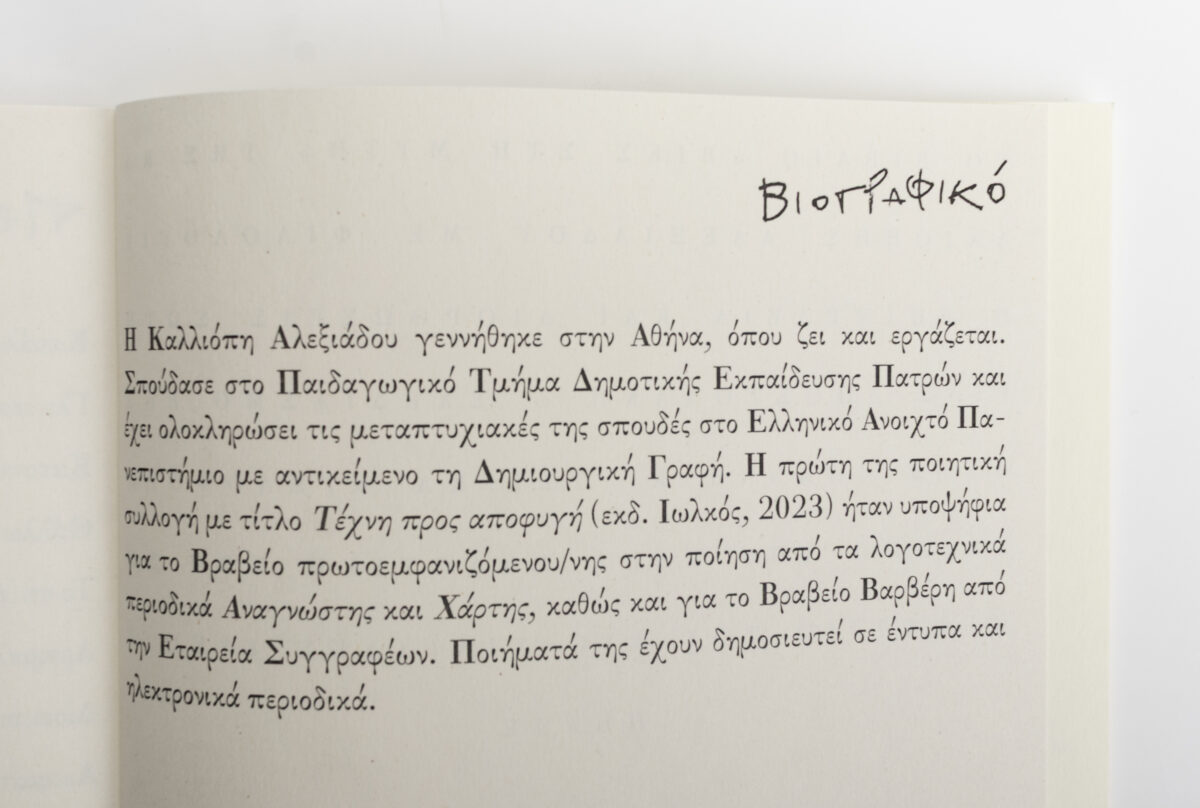 Βιογραφικό
Η Καλλιόπη Αλεξιάδου γεννήθηκε στην Αθήνα, όπου ζει και εργάζεται.
Σπούδασε στο Παιδαγωγικό Τμήμα Δημοτικής Εκπαίδευσης Πατρών και
έχει ολοκληρώσει τις μεταπτυχιακές της σπουδές στο Ελληνικό Ανοιχτό Πα-
νεπιστήμιο με αντικείμενο τη Δημιουργική Γραφή. Η πρώτη της ποιητική
συλλογή με τίτλο Τέχνη προς αποφυγή (εκδ. Ιωλκός, 2023) ήταν υποψήφια
για το Βραβείο πρωτοεμφανιζόμενου/νης στην ποίηση από τα λογοτεχνικά
περιοδικά Αναγνώστης και Χάρτης, καθώς και για το Βραβείο Βαρβέρη από
την Εταιρεία Συγγραφέων. Ποιήματά της έχουν δημοσιευτεί σε έντυπα και
ηλεκτρονικά περιοδικά.